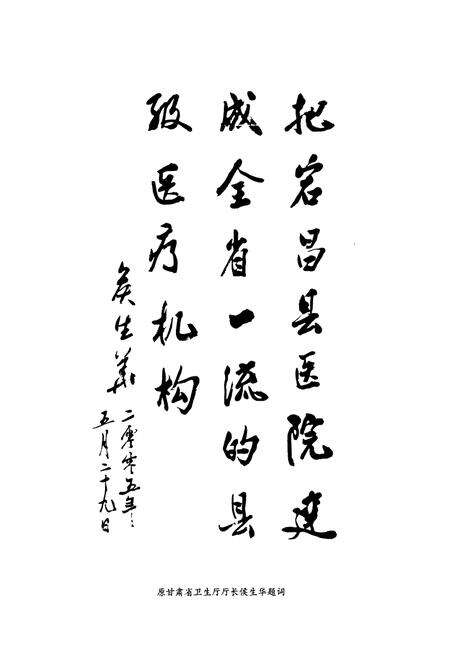 把宕昌县医院建
成全省一流的县
级医疗机构
侯生華 二零零五年
五月二十九日
原甘肃省卫生厅厅长侯生华题词